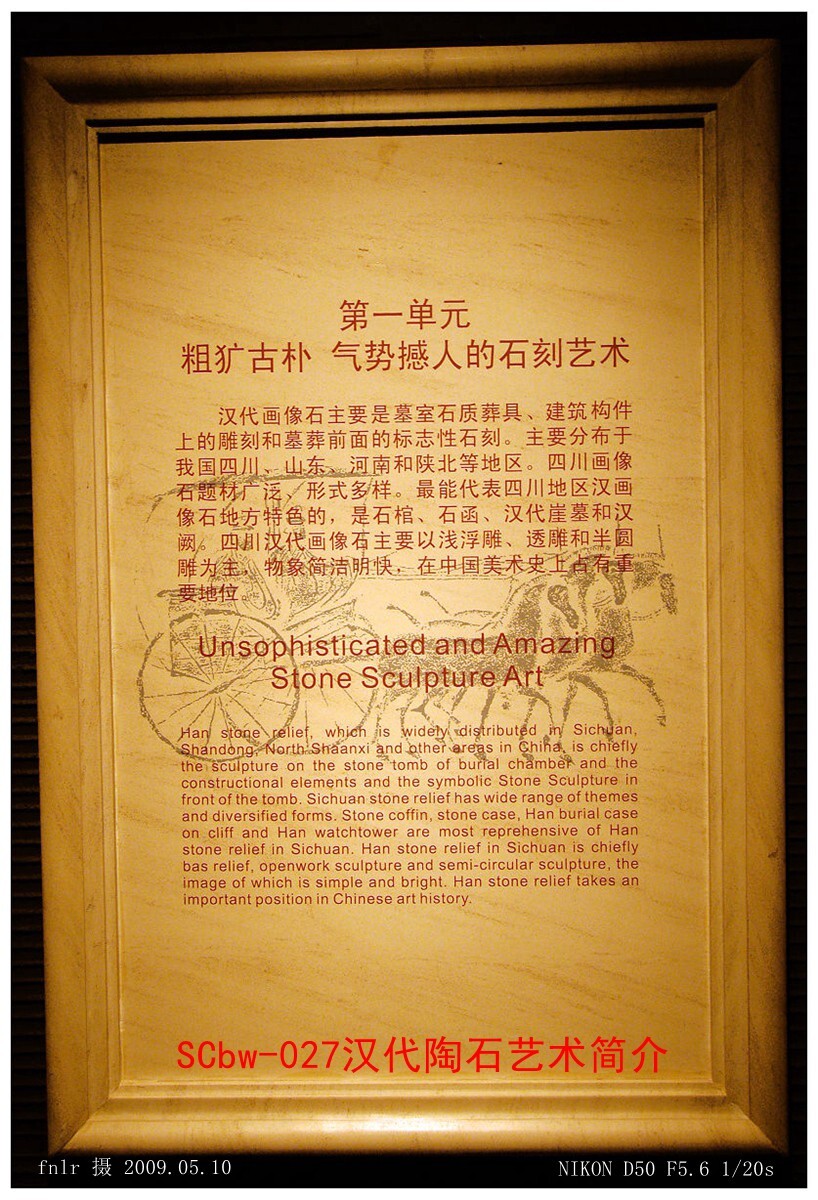 第一单元
粗犷古朴 气势撼人的石刻艺术
汉代画像石主要是墓室石质葬具、建筑构件
上的雕刻和墓葬前面的标志性石刻。主要分布于
我国四川、山东、河南和陕北等地区。四川画像
石题材广泛、形式多样。最能代表四川地区汉画
像石地方特色的，是石棺、石函、汉代崖墓和汉
阙。四川汉代画像石主要以浅浮雕、透雕和半圆
雕为主，物象简洁明快，在中国美术史上占有重
要地位。
Unsophisticated and Amazing
Stone Sculpture Art
Han stone relief, which is widely distributed in Sichuan,
Shandong, North Shaanxi and other areas in China, is chiefly
the sculpture on the stone tomb of burial chamber and the
constructional elements and the symbolic Stone Sculpture in
front of the tomb. Sichuan stone relief has wide range of themes
and diversified forms. Stone coffin, stone case, Han burial case
on cliff and Han watchtower are most reprehensive of Han
stone relief in Sichuan. Han stone relief in Sichuan is chiefly
bas relief, openwork sculpture and semi-circular sculpture, the
image of which is simple and bright. Han stone relief takes an
important position in Chinese art history.
SCbw-027汉代陶石艺术简介
fnlr 摄 2009.05.10
NIKON D50 F5.6 1/20s